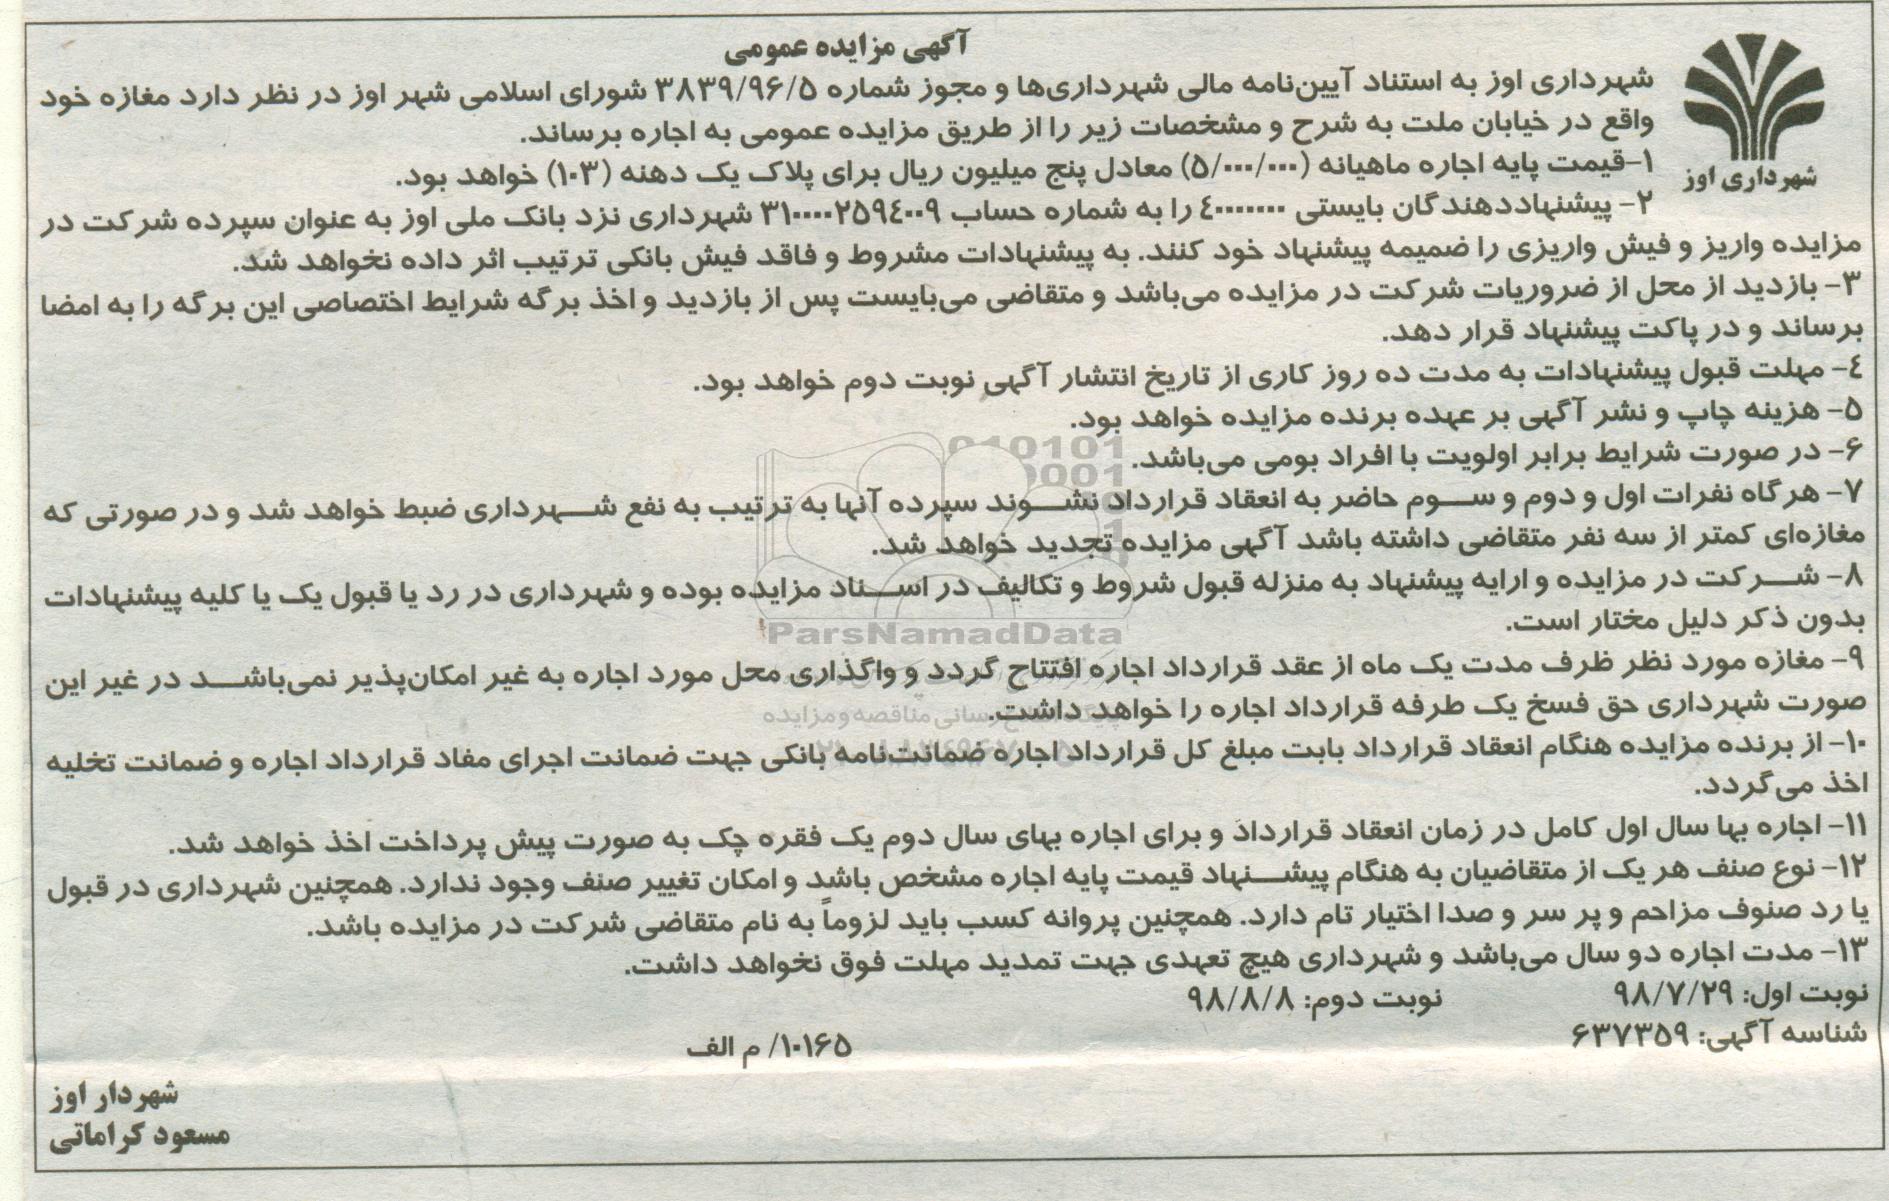 آگهی مزایده عمومی
شهرداری اوز
شهرداری اوز به استناد آیین‌نامه مالی شهرداری‌ها و مجوز شماره ۳۸۳۹/۹۶/۵ شورای اسلامی شهر اوز در نظر دارد مغازه خود
واقع در خیابان ملت به شرح و مشخصات زیر را از طریق مزایده عمومی به اجاره برساند.
۱-قیمت پایه اجاره ماهیانه (۵/۰۰۰/۰۰۰) معادل پنج میلیون ریال برای پلاک یک دهنه (۱۰۳) خواهد بود.
۲- پیشنهاددهندگان بایستی ۴۰۰۰۰۰۰۰ را به شماره حساب ۳۱۰۰۰۰۲۵۹۴۰۰۹ شهرداری نزد بانک ملی اوز به عنوان سپرده شرکت در
مزایده واریز و فیش واریزی را ضمیمه پیشنهاد خود کنند. به پیشنهادات مشروط و فاقد فیش بانکی ترتیب اثر داده نخواهد شد.
۳- بازدید از محل از ضروریات شرکت در مزایده می‌باشد و متقاضی می‌بایست پس از بازدید و اخذ برگه شرایط اختصاصی این برگه را به امضا
برساند و در پاکت پیشنهاد قرار دهد.
۴- مهلت قبول پیشنهادات به مدت ده روز کاری از تاریخ انتشار آگهی نوبت دوم خواهد بود.
۵- هزینه چاپ و نشر آگهی بر عهده برنده مزایده خواهد بود.
۶- در صورت شرایط برابر اولویت با افراد بومی می‌باشد.
۷- هرگاه نفرات اول و دوم و سوم حاضر به انعقاد قرارداد نشوند سپرده آنها به ترتیب به نفع شهرداری ضبط خواهد شد و در صورتی که
مغازه‌ای کمتر از سه نفر متقاضی داشته باشد آگهی مزایده تجدید خواهد شد.
۸- شرکت در مزایده و ارایه پیشنهاد به منزله قبول شروط و تکالیف در اسناد مزایده بوده و شهرداری در رد یا قبول یک یا کلیه پیشنهادات
بدون ذکر دلیل مختار است.
ParsNamadData
۹- مغازه مورد نظر ظرف مدت یک ماه از عقد قرارداد اجاره افتتاح گردد و واگذاری محل مورد اجاره به غیر امکان‌پذیر نمی‌باشد در غیر این
صورت شهرداری حق فسخ یک طرفه قرارداد اجاره را خواهد داشت.
۱۰- از برنده مزایده هنگام انعقاد قرارداد بابت مبلغ کل قرارداد اجاره ضمانت‌نامه بانکی جهت ضمانت اجرای مفاد قرارداد اجاره و ضمانت تخلیه
اخذ می‌گردد.
۱۱- اجاره بها سال اول کامل در زمان انعقاد قرارداد و برای اجاره بهای سال دوم یک فقره چک به صورت پیش پرداخت اخذ خواهد شد.
۱۲- نوع صنف هر یک از متقاضیان به هنگام پیشنهاد قیمت پایه اجاره مشخص باشد و امکان تغییر صنف وجود ندارد. همچنین شهرداری در قبول
یا رد صنوف مزاحم و پر سر و صدا اختیار تام دارد. همچنین پروانه کسب باید لزوماً به نام متقاضی شرکت در مزایده باشد.
۱۳- مدت اجاره دو سال می‌باشد و شهرداری هیچ تعهدی جهت تمدید مهلت فوق نخواهد داشت.
نوبت اول: ۹۸/۷/۲۹ نوبت دوم: ۹۸/۸/۸
شناسه آگهی: ۶۳۷۳۵۹
۱۰۱۶۵/ م الف
شهردار اوز
مسعود کراماتی